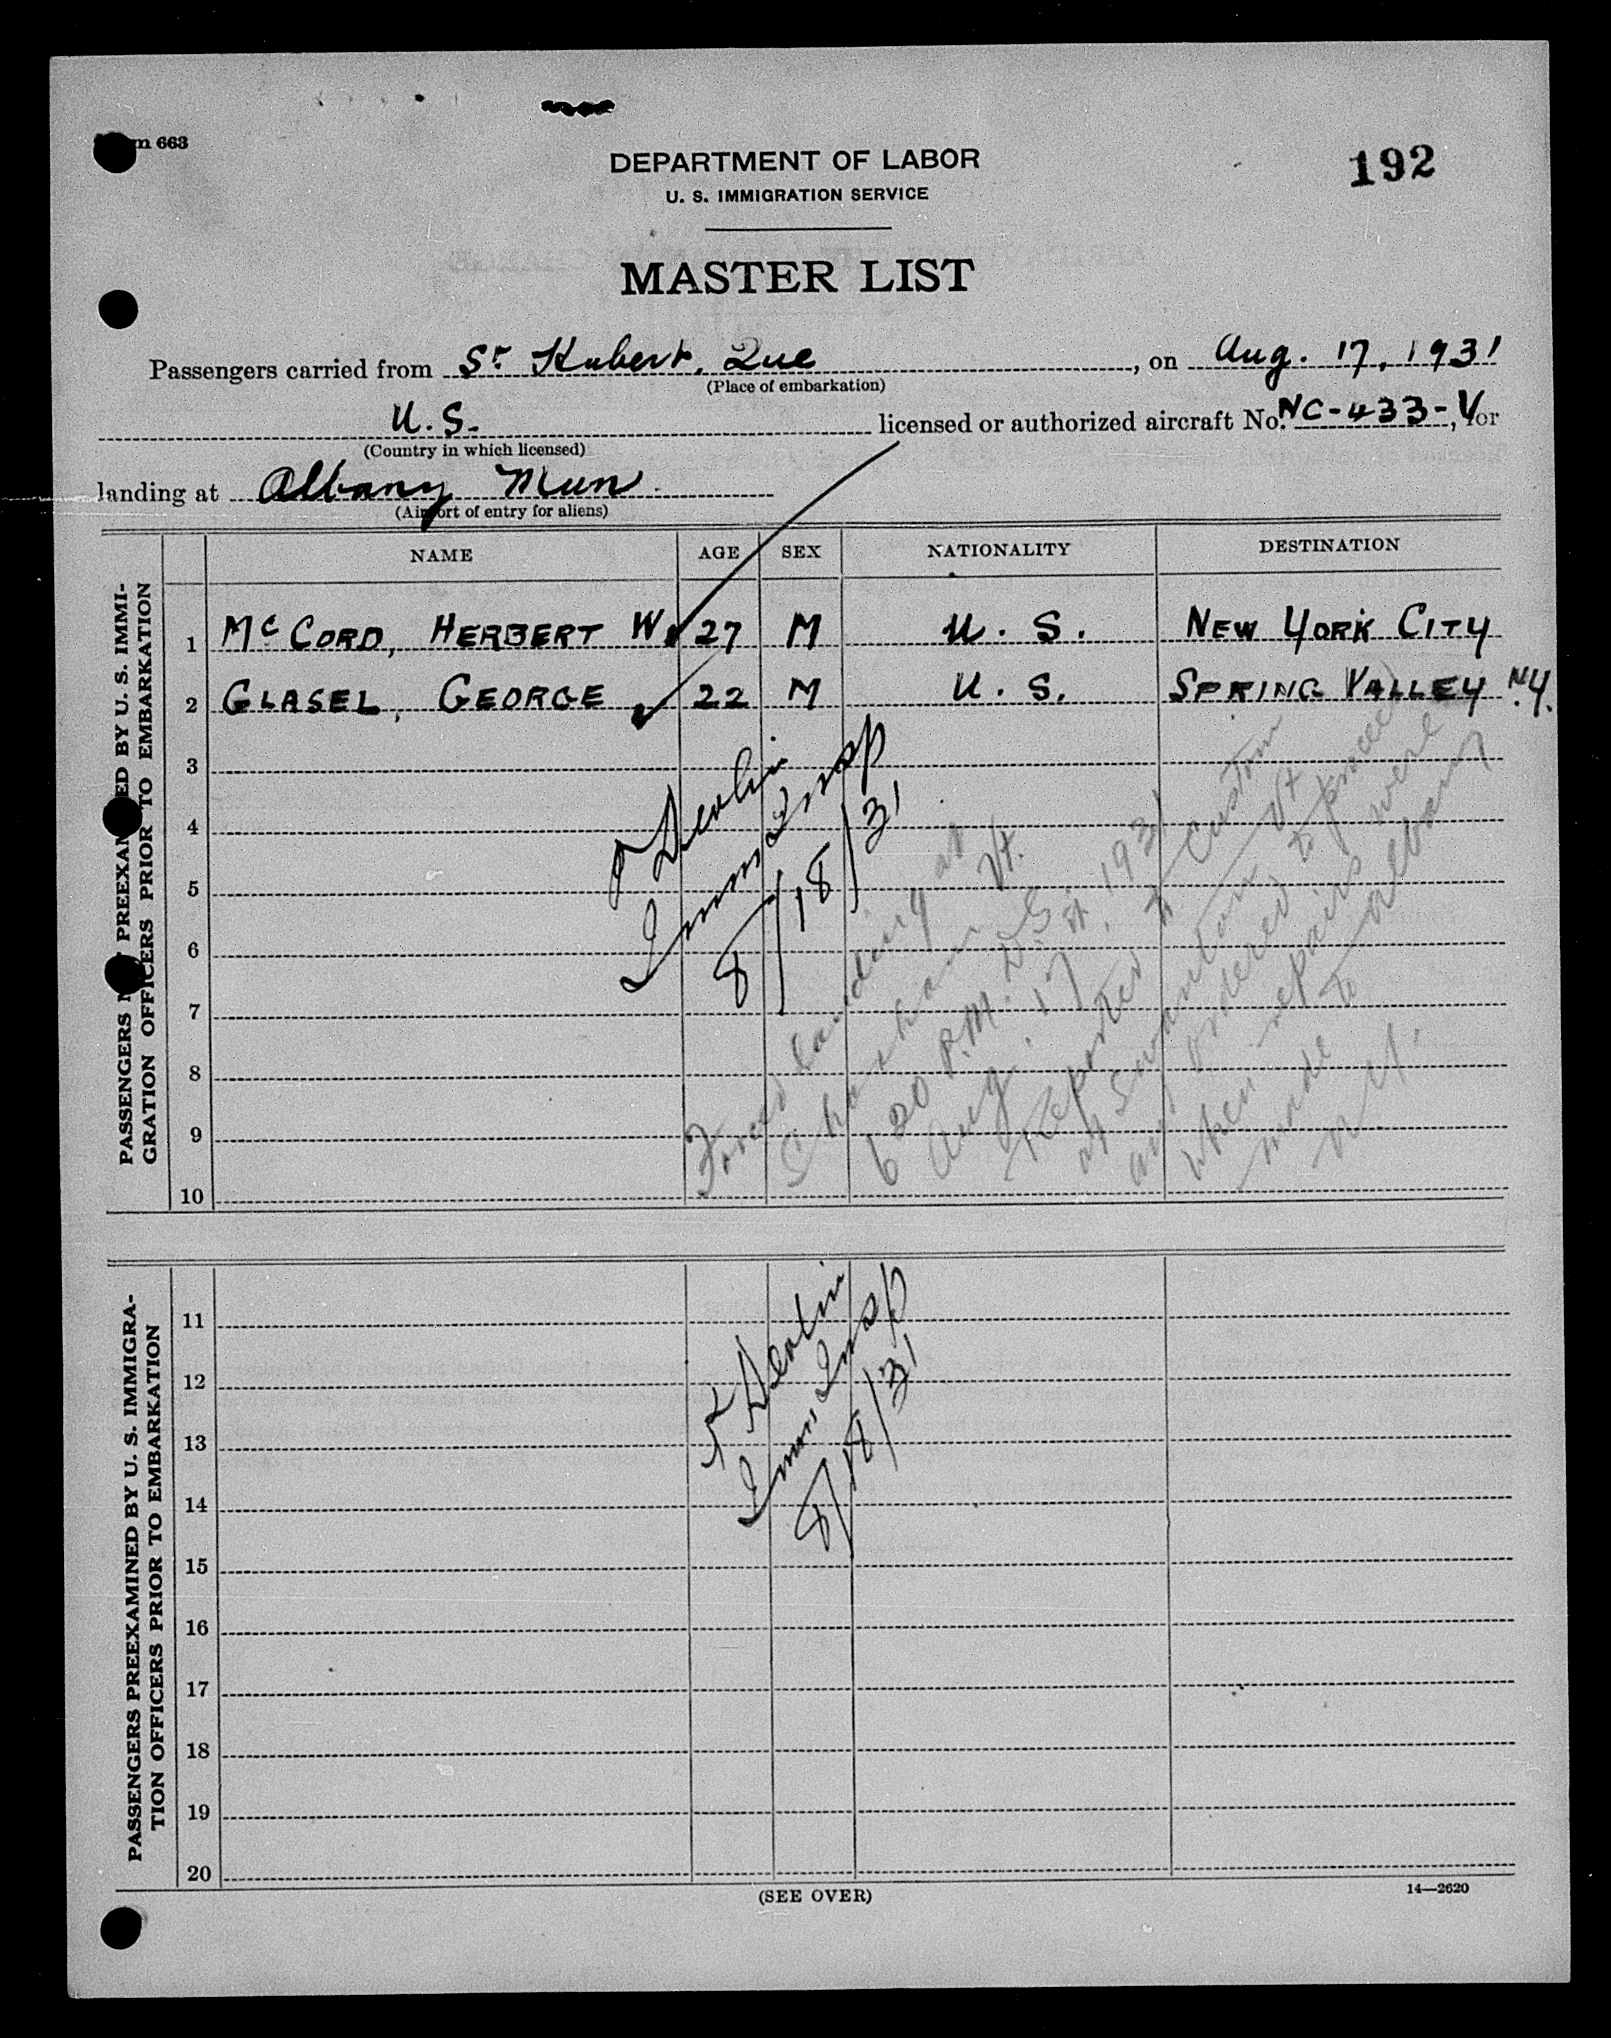 m 663
DEPARTMENT OF LABOR
192
U. S. IMMIGRATION SERVICE
MASTER LIST
Passengers carried from St Hubert, Que, on Aug. 17, 1931
(Place of embarkation)
U.S. licensed or authorized aircraft No. NC-433-V, for
(Country in which licensed)
landing at Albany Mun.
(Airport of entry for aliens)
NAME AGE SEX NATIONALITY DESTINATION
PASSENGERS PREEXAMINED BY U. S. IMMI-
GRATION OFFICERS PRIOR TO EMBARKATION
1 McCORD, HERBERT W. 27 M U. S. NEW YORK CITY
2 GLASEL, GEORGE 22 M U. S. SPRING VALLEY N.Y.
3
4
5
6
7
8
9
10
Devlin
Imm Insp
8/18/31
Forced landing at
Vt.
620 P.M. D.S.t.
Aug. 17 1931
Reported to Custom
at Swanton Vt
and ordered to proceed
when repairs were
made to Albany
N.Y.
PASSENGERS PREEXAMINED BY U. S. IMMIGRA-
TION OFFICERS PRIOR TO EMBARKATION
11
12
13
14
15
16
17
18
19
20
F Devlin
Imm Insp
8/18/31
(SEE OVER)
14—2620